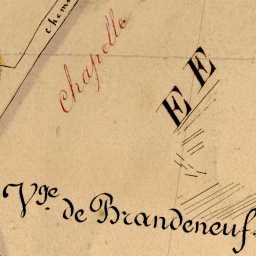 chem
chapelle
E E
Vge de Brandeneuf.